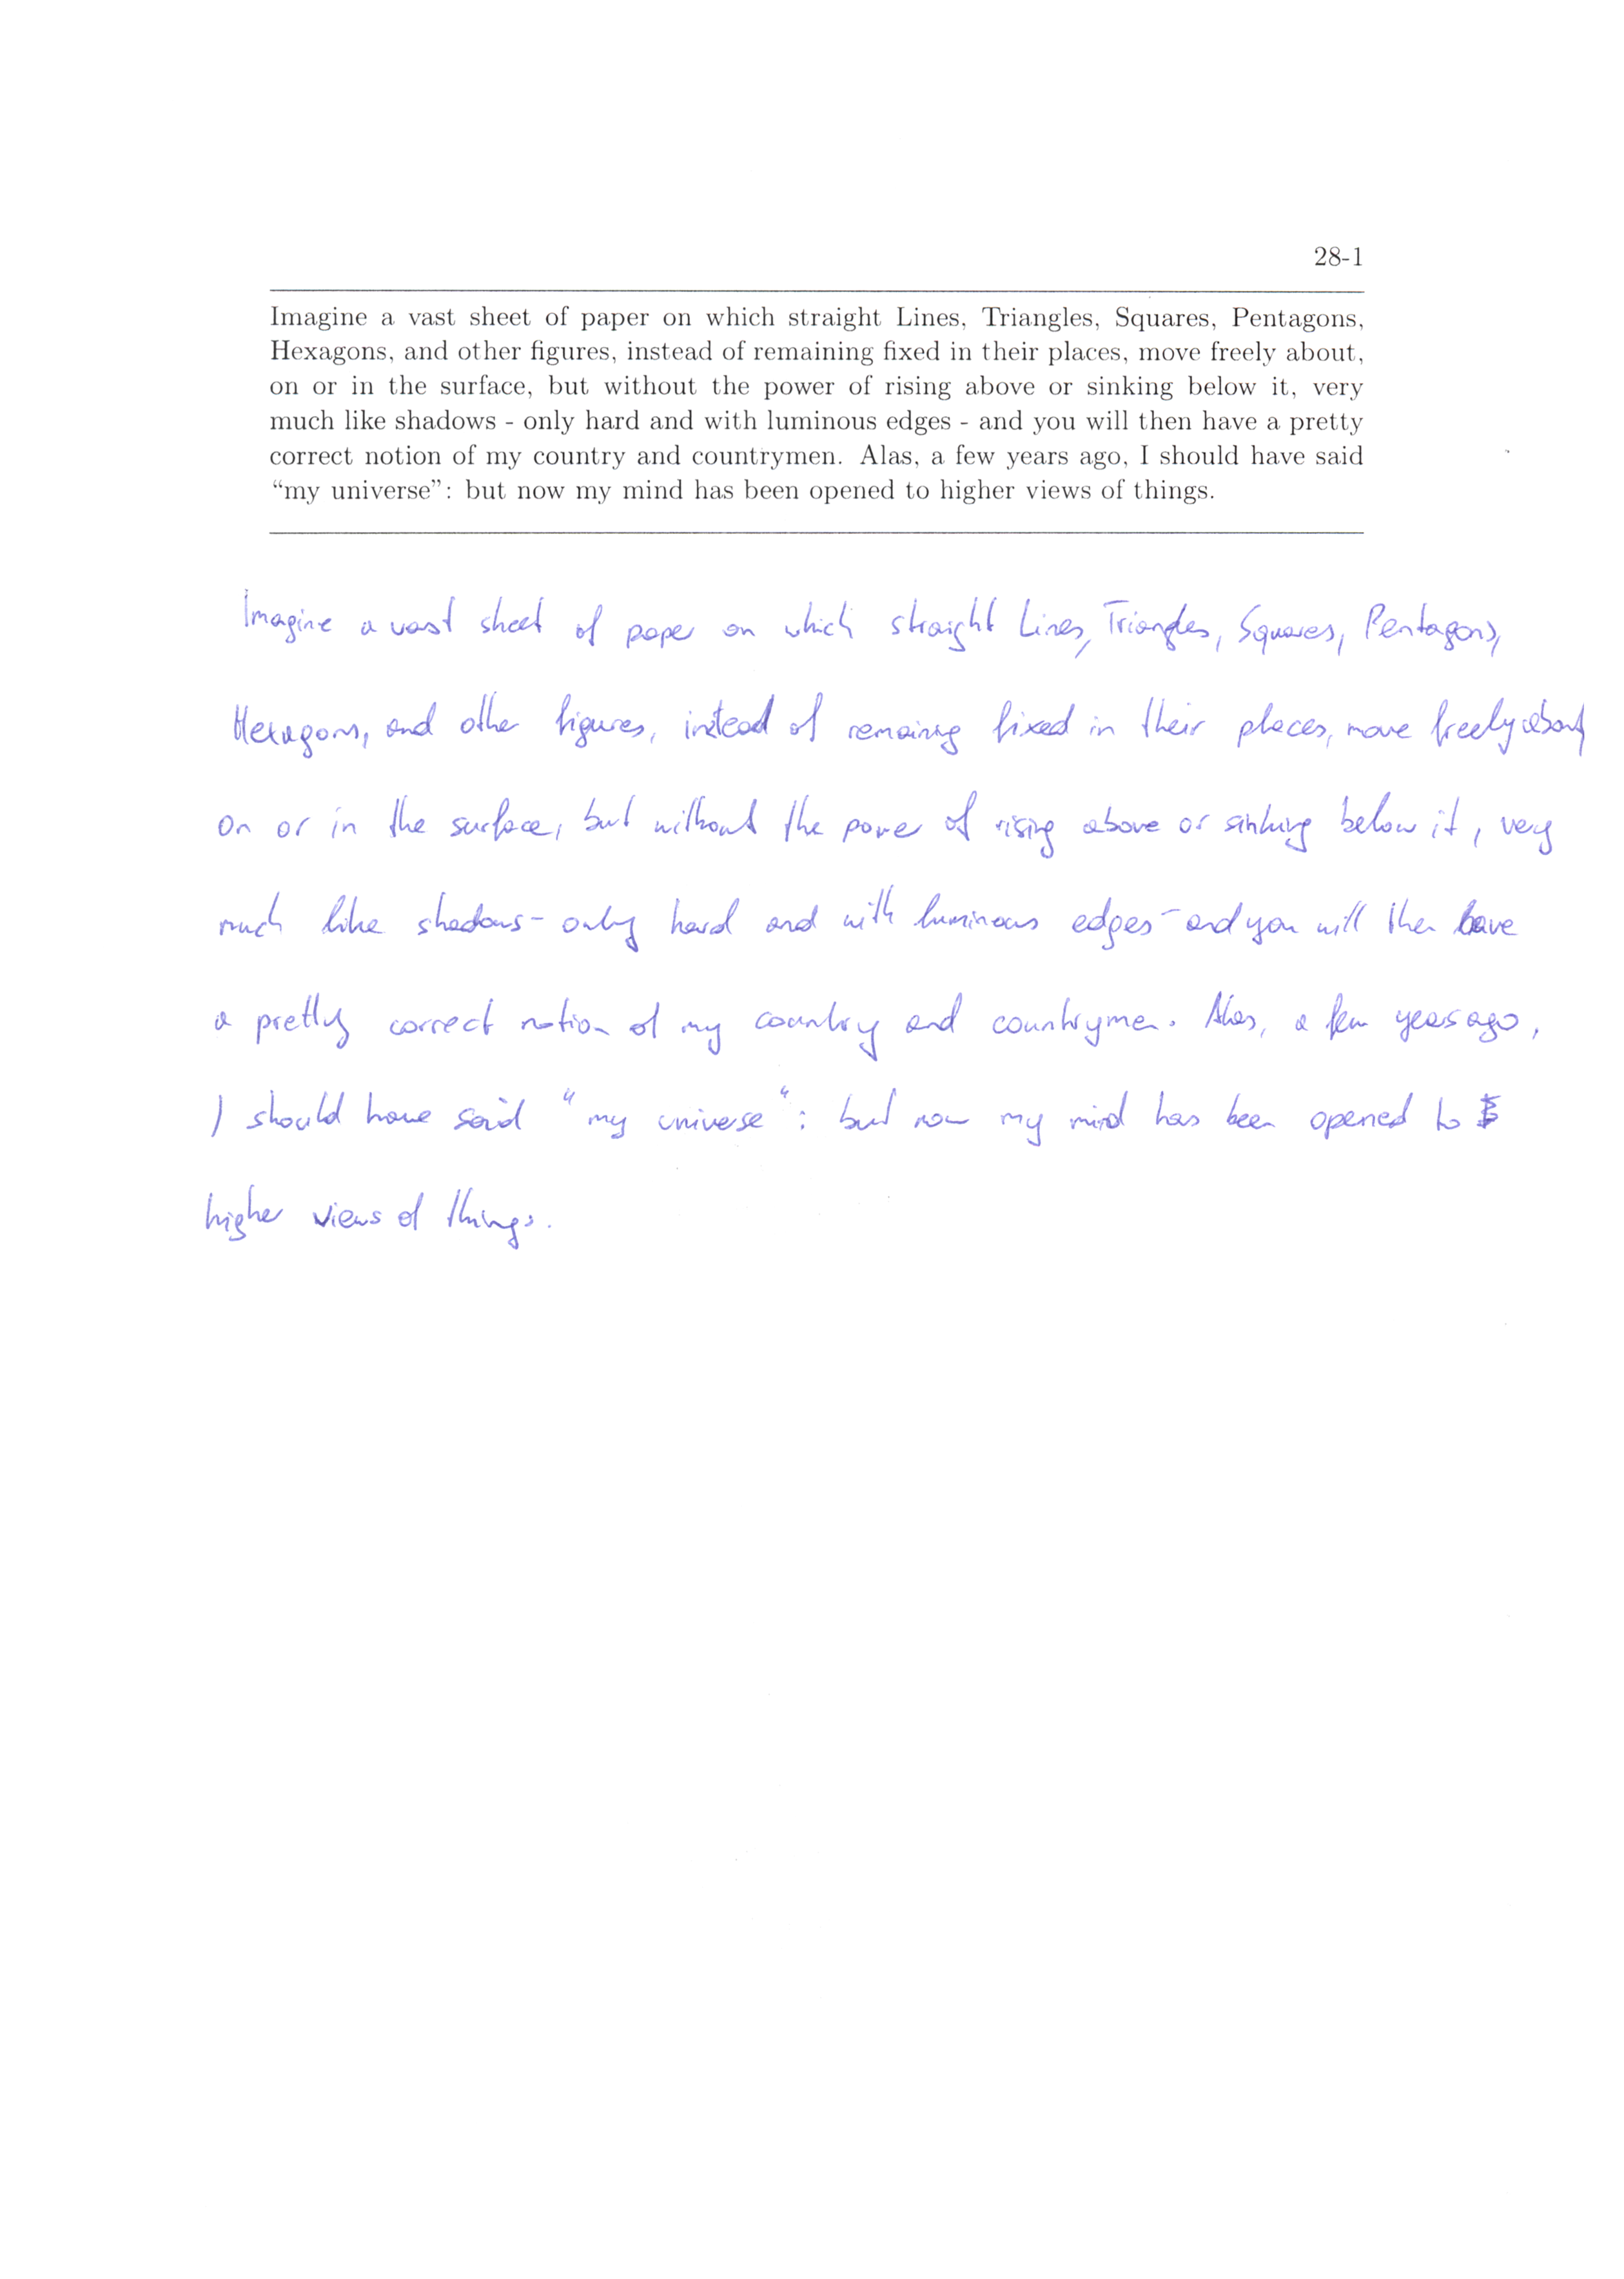 28-1
Imagine a vast sheet of paper on which straight Lines, Triangles, Squares, Pentagons,
Hexagons, and other figures, instead of remaining fixed in their places, move freely about,
on or in the surface, but without the power of rising above or sinking below it, very
much like shadows - only hard and with luminous edges - and you will then have a pretty
correct notion of my country and countrymen. Alas, a few years ago, I should have said
“my universe”: but now my mind has been opened to higher views of things.
Imagine a vast sheet of paper on which straight Lines, Triangles, Squares, Pentagons,
Hexagons, and other figures, instead of remaining fixed in their places, move freely about,
on or in the surface, but without the power of rising above or sinking below it, very
much like shadows - only hard and with luminous edges - and you will then have
a pretty correct notion of my country and countrymen. Alas, a few years ago,
I should have said "my universe": but now my mind has been opened to
higher views of things.